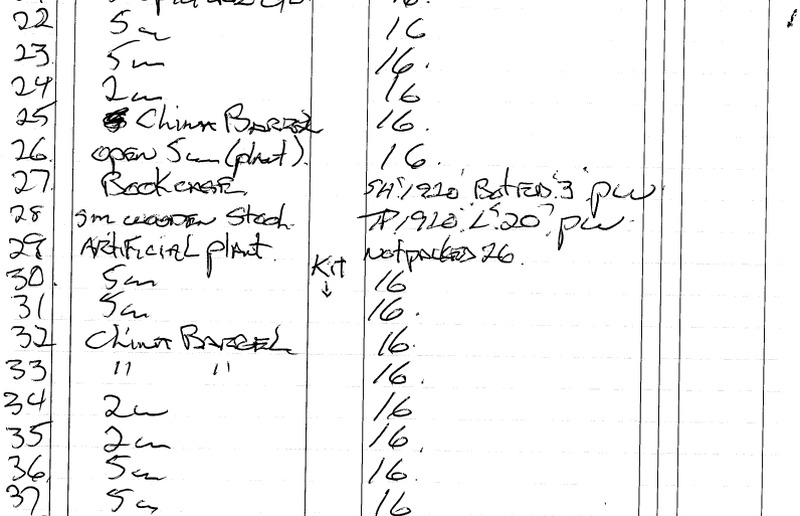 22 5cu 16
23 5cu 16.
24 2cu 16
25 China Barrel 16.
26. open 5cu (plant). 16.
27 Bookcase SH 1920 Bot ED. 3 pw
28 sm wooden Stool 1920 L 20 pw.
29 Artificial plant. Not packed 26
Kit ↓
30. 5cu 16
31 5cu 16.
32 China Barrel 16.
33 " " 16.
34 2cu 16
35 2cu 16.
36. 5cu 16.
37. 5cu 16